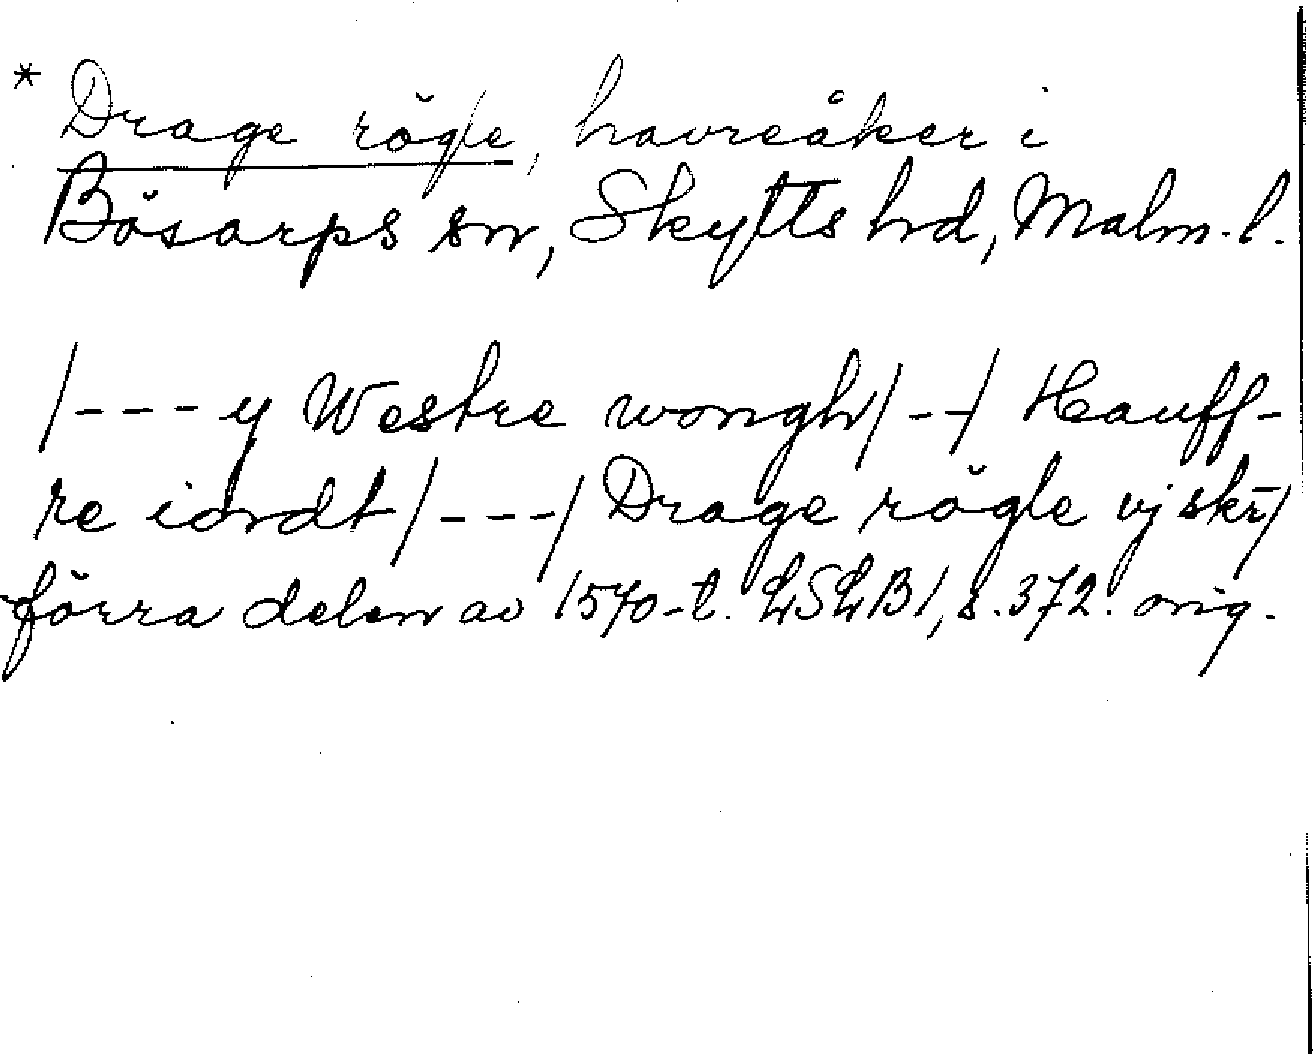 * Drage rögle, havreåker i
Bösarps sn, Skytts hd, Malm. l.
/--- y Westre wongh/--/ Hauff-
re iordt/---/ Drage rögle vj skr̄/
förra delen av 1570-t. LSLB1, s. 372. orig.